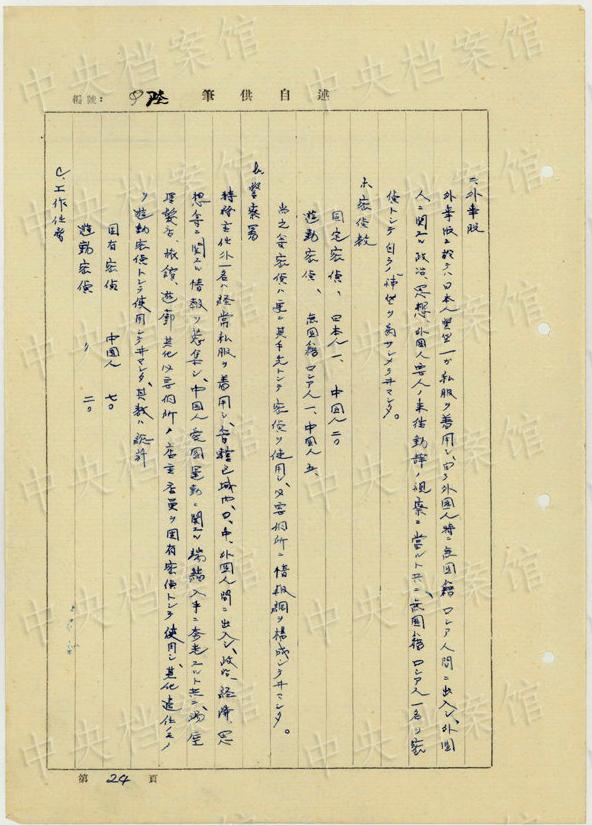 編號： 陸 筆供自述
二、外事股
外事股ニ於テハ日本人警尉一ガ私服ヲ着用シ、白系外国人特ニ無国籍ロシア人間ニ出入シ、外国
人ニ関スル政治、思想、外国人要人ノ来往動静ノ視察ニ当ルト共ニ、無国籍ロシア人一名ヲ密
偵トシテ自ラノ補佐ヲ為サシメヰマシタ。
ホ、密偵数
固定密偵、日本人一、中国人二〇
遊動密偵、無国籍ロシア人一、中国人五、
尚之等密偵ハ更ニ其手先トシテ密偵ヲ使用シ、必要個所ニ情報網ヲ構成シテヰマシタ。
b、警察署
特務主任外一名ハ経常私服ヲ着用シ、各管区域内、日、中、外国人間ニ出入シ、政治、経済、思
想等ニ関スル情報ヲ蒐集シ、中国人愛国運動ニ関スル端緒入手ニ専念スルト共ニ、
旅館、遊郭其他必要個所ノ店主店員ヲ固有密偵トシテ使用シ、其他適任者
ヲ遊動密偵トシテ使用シテヰマシタ、其数ハ総計
固有密偵 中国人 七〇
遊動密偵 〃 二〇
C、工作任務
第 24 頁
中央档案馆